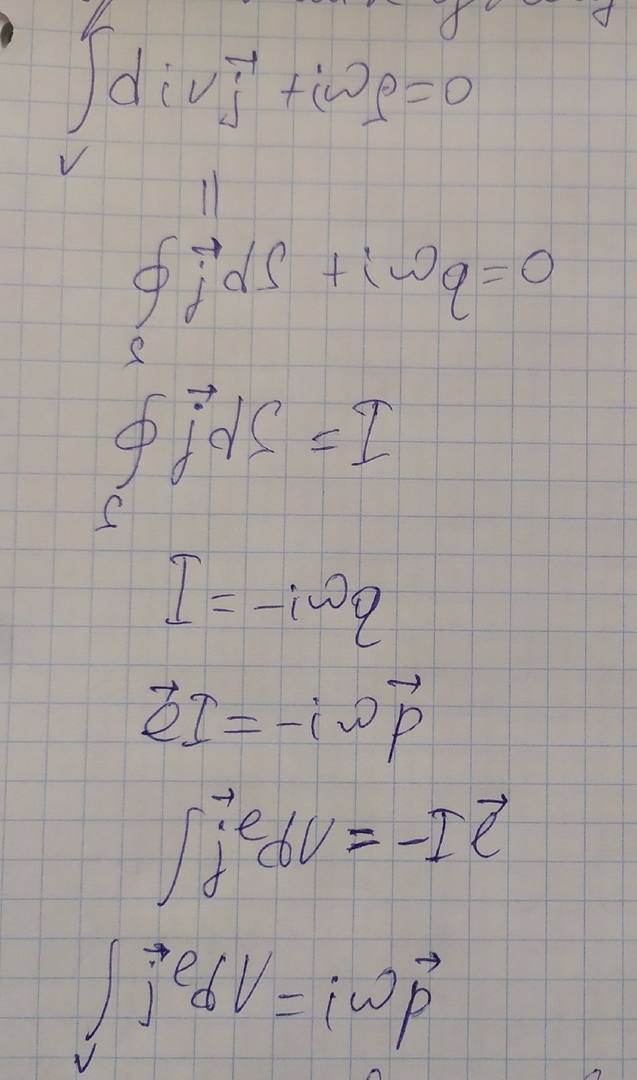 ∫_V div j⃗ + iωρ = 0
||
∮_S j⃗ dS + iωq = 0
∮_S j⃗ dS = I
I = -iωq
l⃗I = -iωp⃗
∫ j⃗^e dV = -I l⃗
∫_V j⃗^e dV = iωp⃗